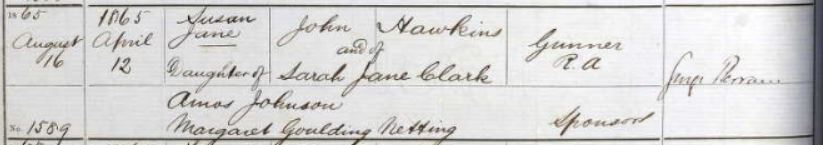 1865 1865 Susan John Hawkins
August April Jane and of Gunner
16 12 Daughter of Sarah Jane Clark R.A
Amos Johnson
No. 1589 Margaret Goulding Netting Sponsors